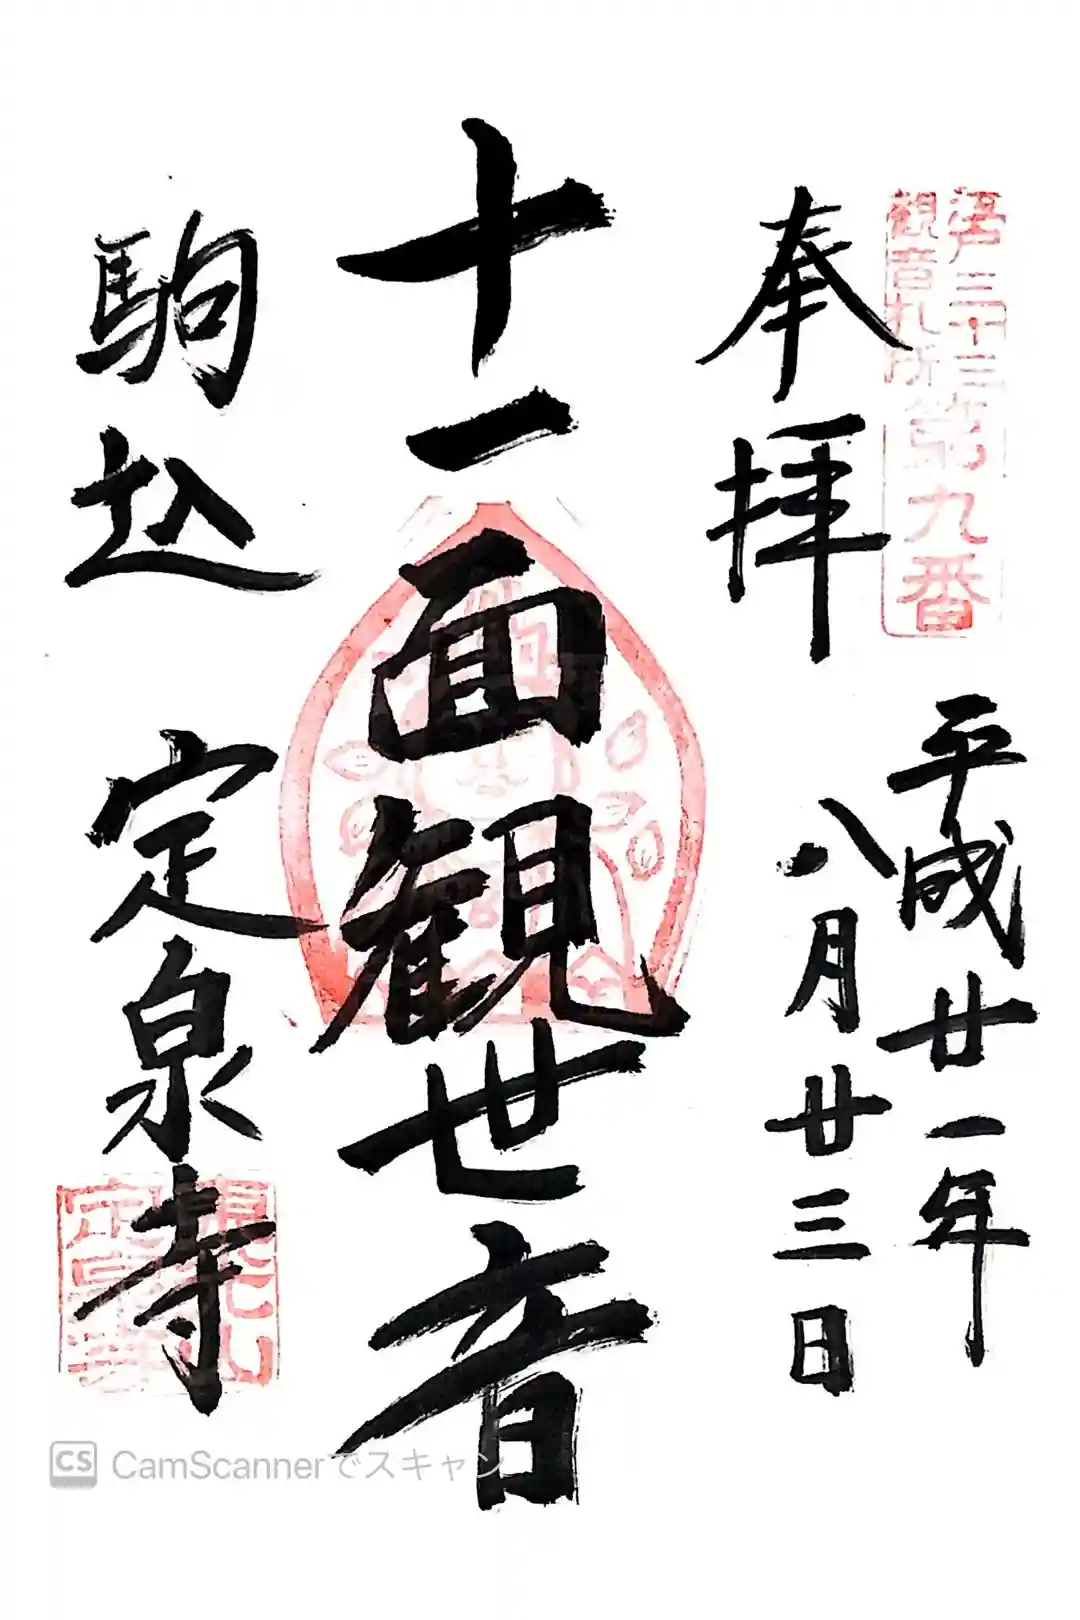 江戸三十三
観音札所
第九番
奉拝
平成廿一年
八月廿三日
十一面観世音
駒込 定泉寺
東光山
定泉寺
CS CamScannerでスキャン